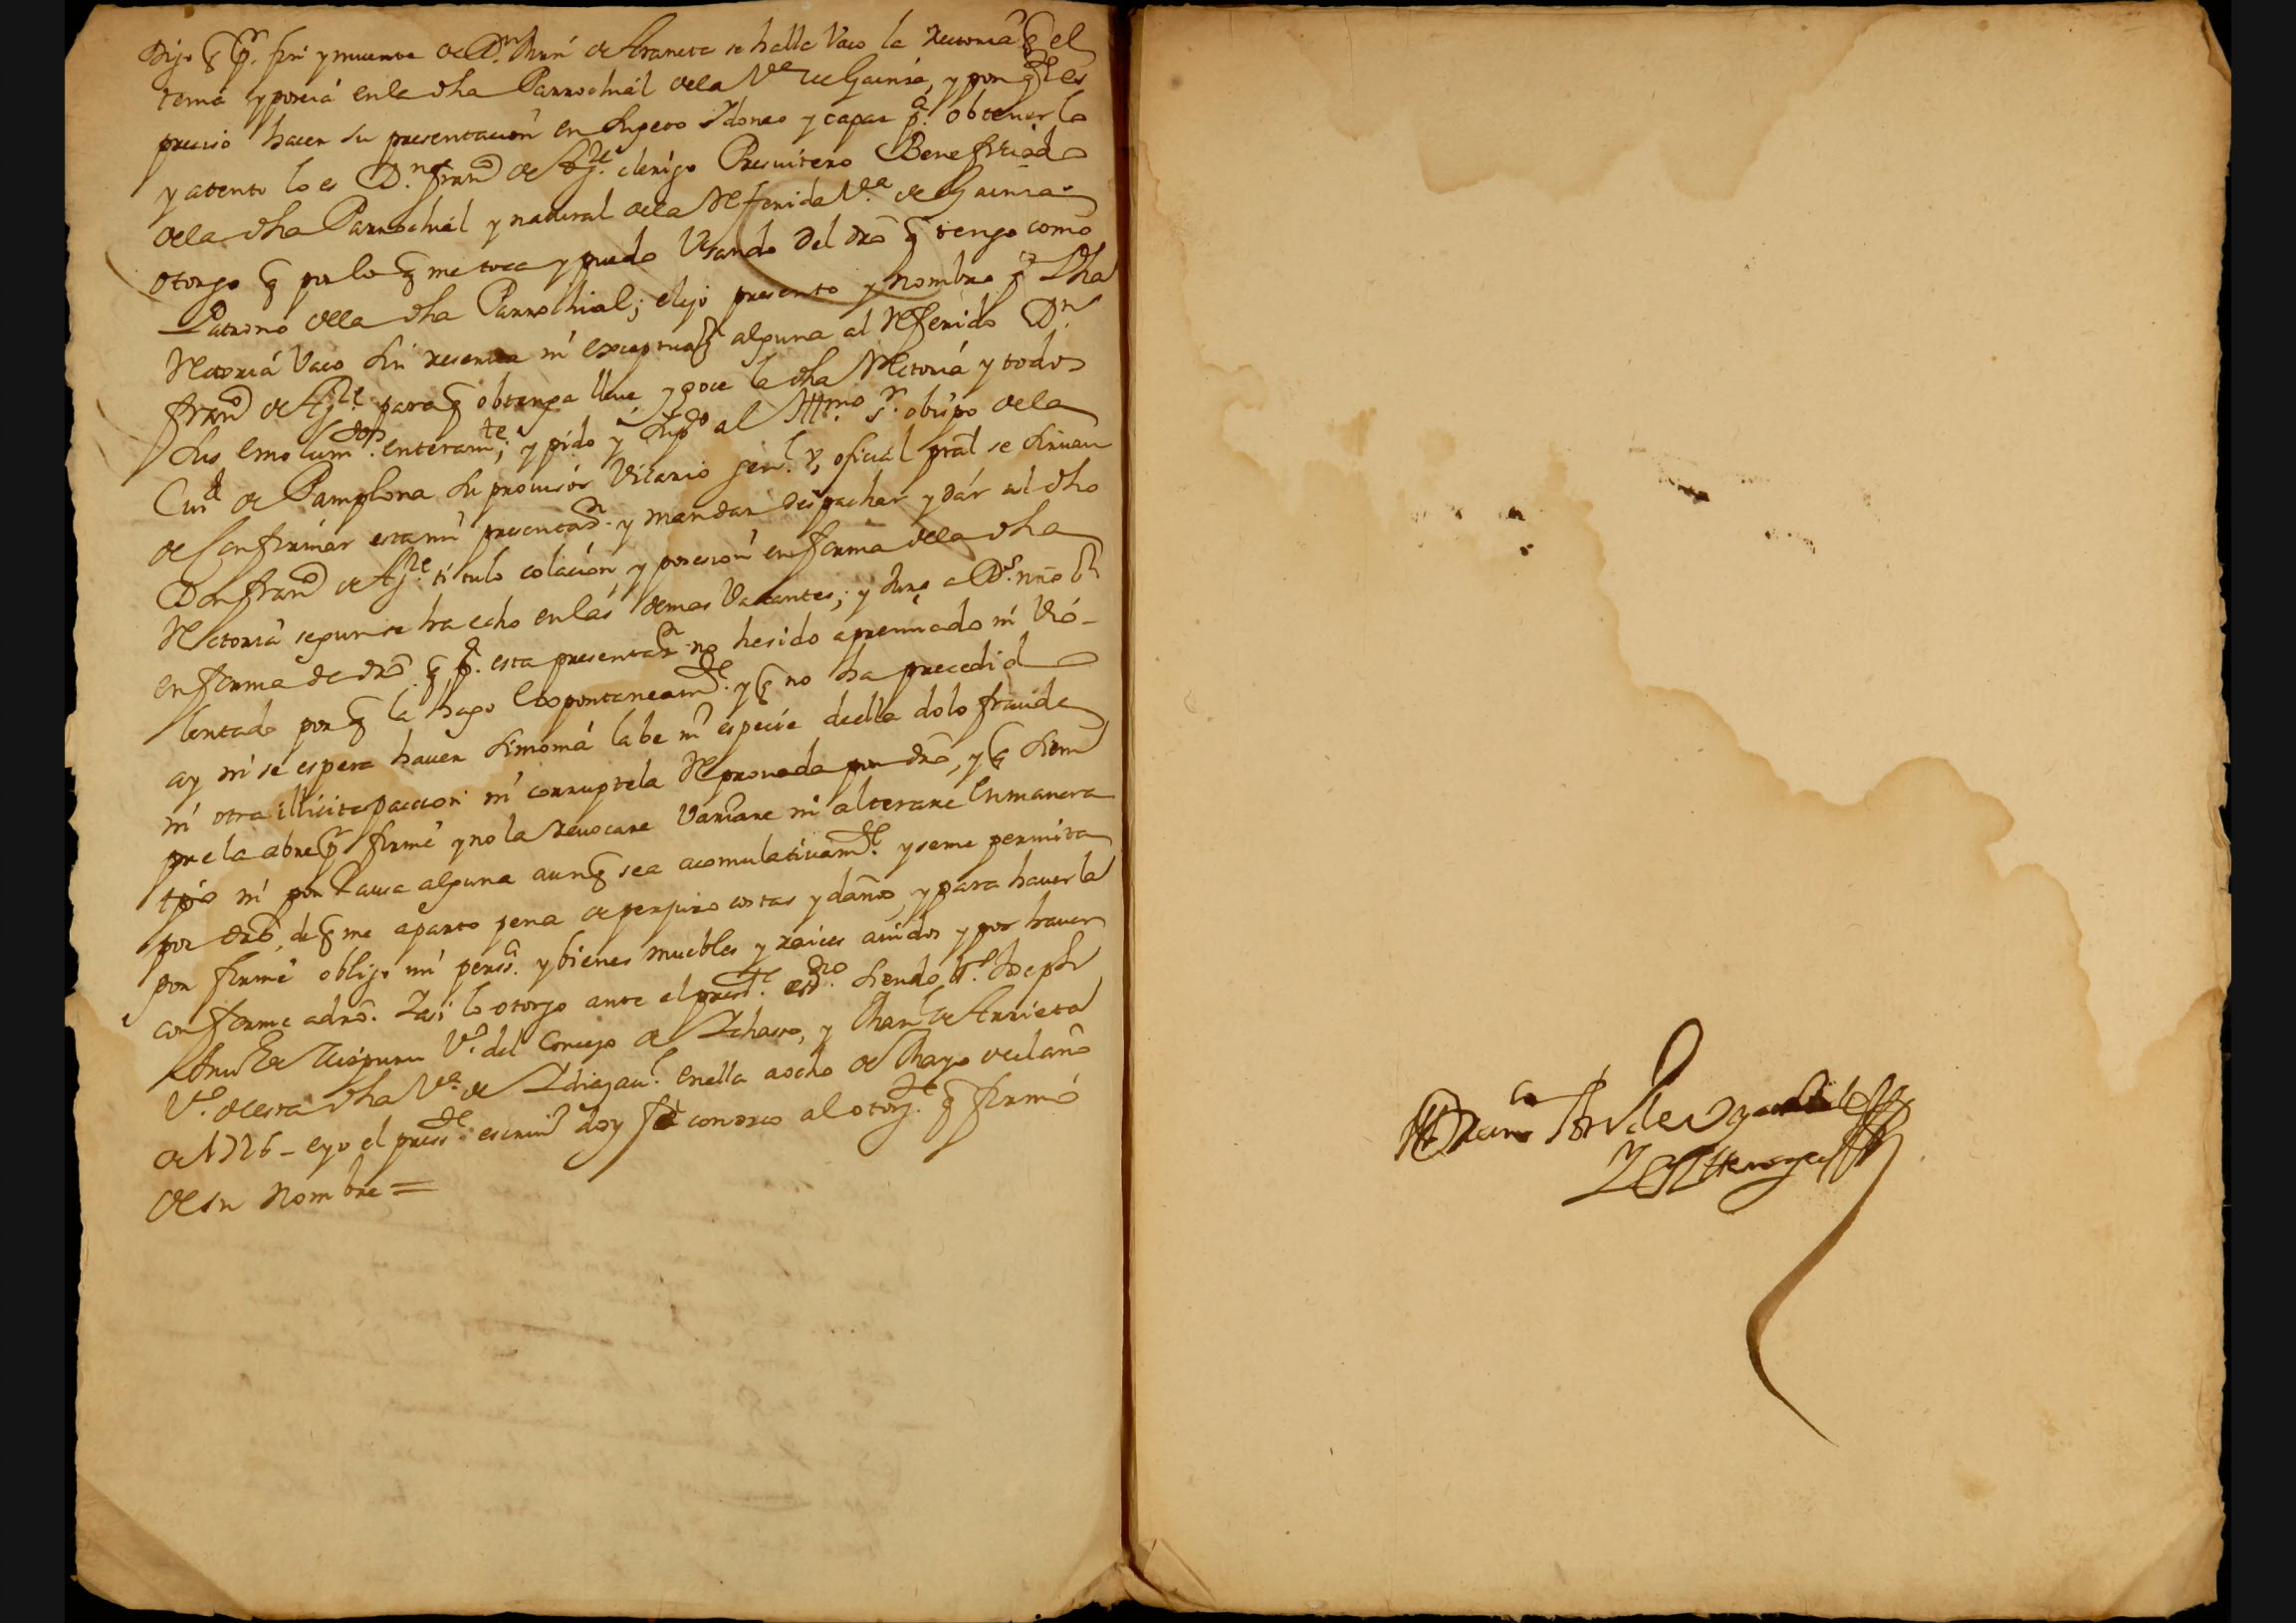 Dijo q̃ pr. fin y muerte de Dn. Mrn̄ de Araneta se halla Vaco la Rectoria q̃ el
tenia y poseia en la dha Parrochial de la Va de Gainza, y por q̃to es
preciso hacer su presentacion en sugeto Idoneo y capaz pa. obtenerlo
y atento lo es Dn. franco de Agre. clerigo Presuitero Beneficiado
de la dha Parrochial y natural de la Referida Va. de Gainza
otorgo q̃ por lo q̃ me toca y puedo Usando del dro q̃ tengo como
Patrono de la dha Parrochial; elijo presento y nombro pa dha
Rectoria Vaco sin reserua ni exceptuaon alguna al Referido Dn
franco de Agre. para q̃ obtenga lleue y goce la dha Rectoria y todos
sus emolumtos. enteramte; y pido y supco al Illmo Sr. obispo de la
Ciud de Pamplona su prouisor Vicario genl. y oficial pral se siruan
de Confirmar esta mi presentaon. y mandar despachar y dár al dho
Don franco de Agre. titulo colación y posesion en forma de la dha
Rectoria segun se ha echo en las demas Vacantes; y Juro a Ds. nro Sr
en forma de dro. q̃ pa. esta presentaon no he sido apremiado ni Vio-
lentado por q̃ la hago Expontaneamte. y q̃ no ha precedido
ay ni se espera hauer Simonia labe ni especie de ella dolo fraude
ni otra illicita paccion ni corruptela Reprouada por dro, y q̃ siem
pre la abre pr firme y no la reuocare Variare ni alterare En manera
ni por Causa alguna aunq̃ sea acomulatiuamte. y se me permita
por dro, de q̃ me aparto pena de perjuro costas y daños, y para hauerla
por firme obligo mi persa. y bienes muebles y raices auidos y por hauer
conforme a dro. Y asi lo otorgo ante el presте. essno. siendo ts. Joseph
Vo. del Concejo de Ichaso, y Manl de Arrieta
Vo. de esta dha Va de Idiazaul. en ella a ocho de Mayo de el año
de 1726 - e yo el preste. escriuo doy fee conozco al otorgte. q̃ firmó
de su Nombre =